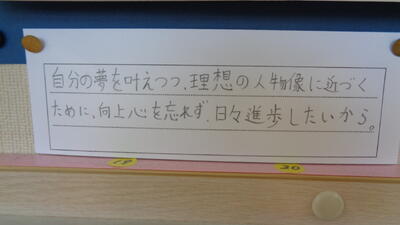 自分の夢を叶えつつ、理想の人物像に近づく
ために、向上心を忘れず、日々進歩したいから。
19
20